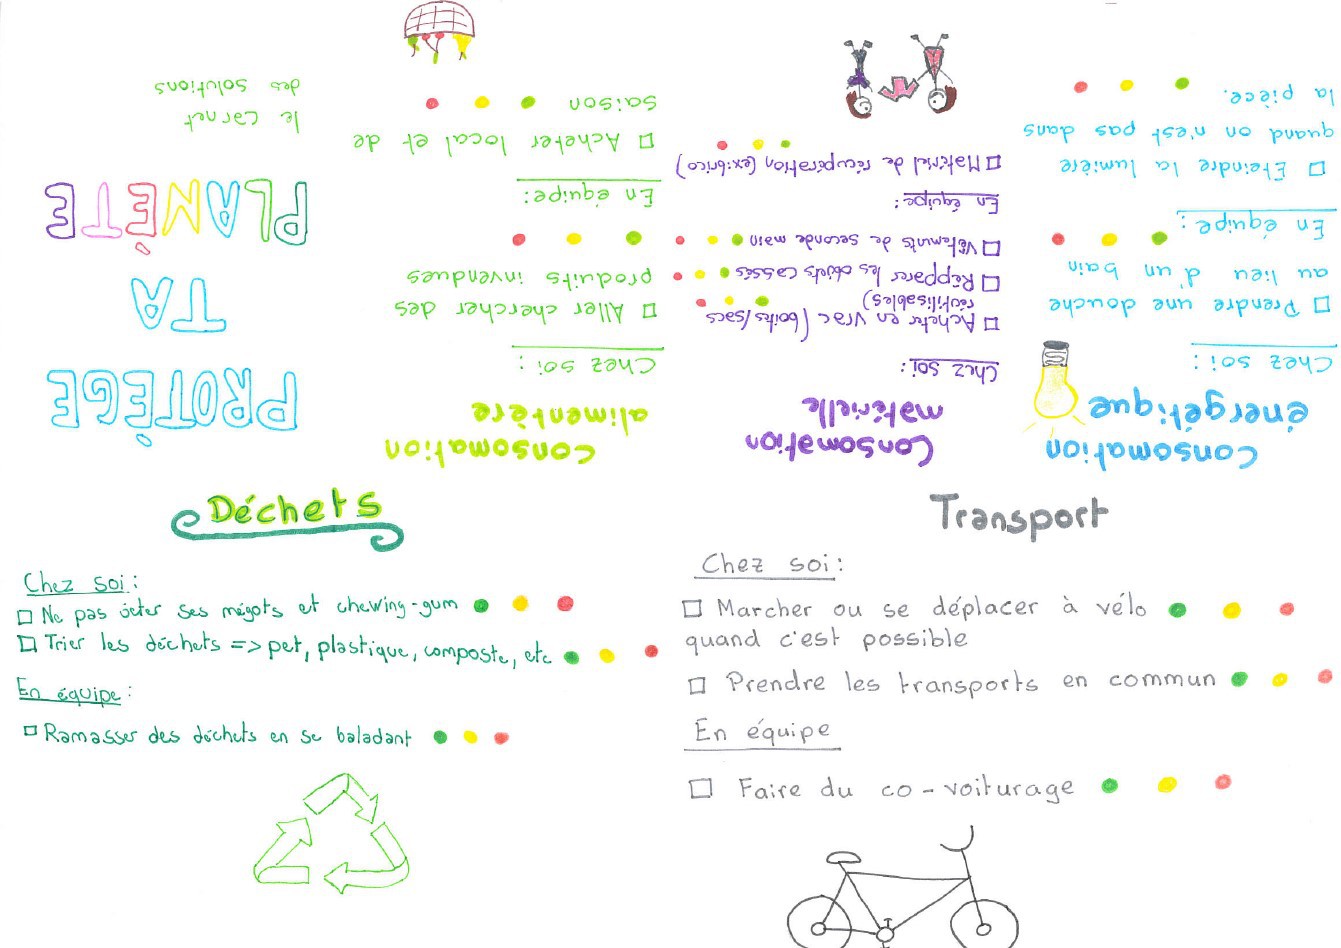 PROTÈGE
TA
PLANÈTE
le carnet
des solutions
Consomation
alimentère
Chez soi :
□ Aller chercher des
produits invendues
En équipe :
□ Acheter local et de
saison
Consomation
matérielle
Chez soi :
□ Acheter en vrac (boites/sacs
réutilisables)
□ Répparer les objets cassés
□ Vêtements de seconde main
En équipe :
□ Matériel de récupération (ex: brico)
Consomation
énergétique
Chez soi :
□ Prendre une douche
au lieu d'un bain
En équipe :
□ Eteindre la lumière
quand on n'est pas dans
la pièce.
Déchets
Chez soi :
□ Ne pas jeter ses mégots et chewing-gum
□ Trier les déchets => pet, plastique, composte, etc
En équipe :
□ Ramasser des déchets en se baladant
Transport
Chez soi :
□ Marcher ou se déplacer à vélo
quand c'est possible
□ Prendre les transports en commun
En équipe
□ Faire du co-voiturage